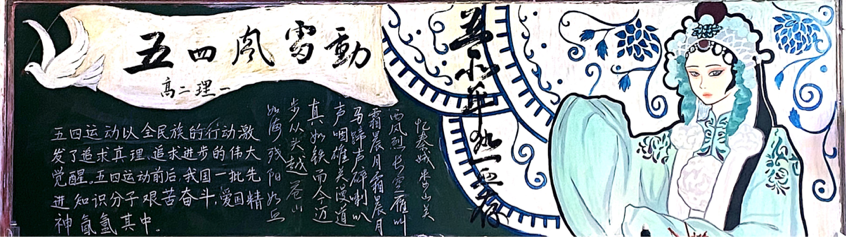 五四风雪動
高二理一
五四运动以全民族的行动激
发了追求真理、追求进步的伟大
觉醒。五四运动前后,我国一批先
进知识分子艰苦奋斗,爱国精
神氤氲其中。
忆秦娥 娄山关
西风烈长空雁叫
霜晨月霜晨月
马蹄声碎喇叭
声咽雄关漫道
真如铁而今迈
步从头越苍山
如海残阳如血